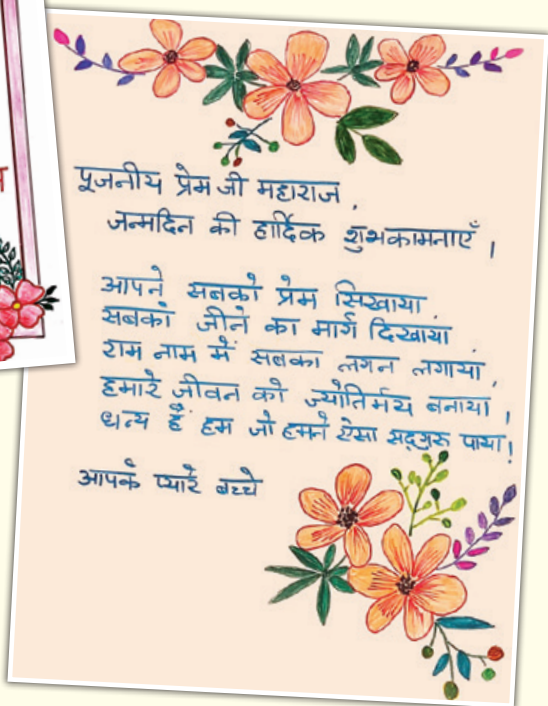 पूजनीय प्रेम जी महाराज,
जन्मदिन की हार्दिक शुभकामनाएँ।
आपने सबको प्रेम सिखाया,
सबको जीने का मार्ग दिखाया
राम नाम में सबका लगन लगाया,
हमारे जीवन को ज्योतिर्मय बनाया,
धन्य हैं हम जो हमने ऐसा सद्गुरु पाया!
आपके प्यारे बच्चे